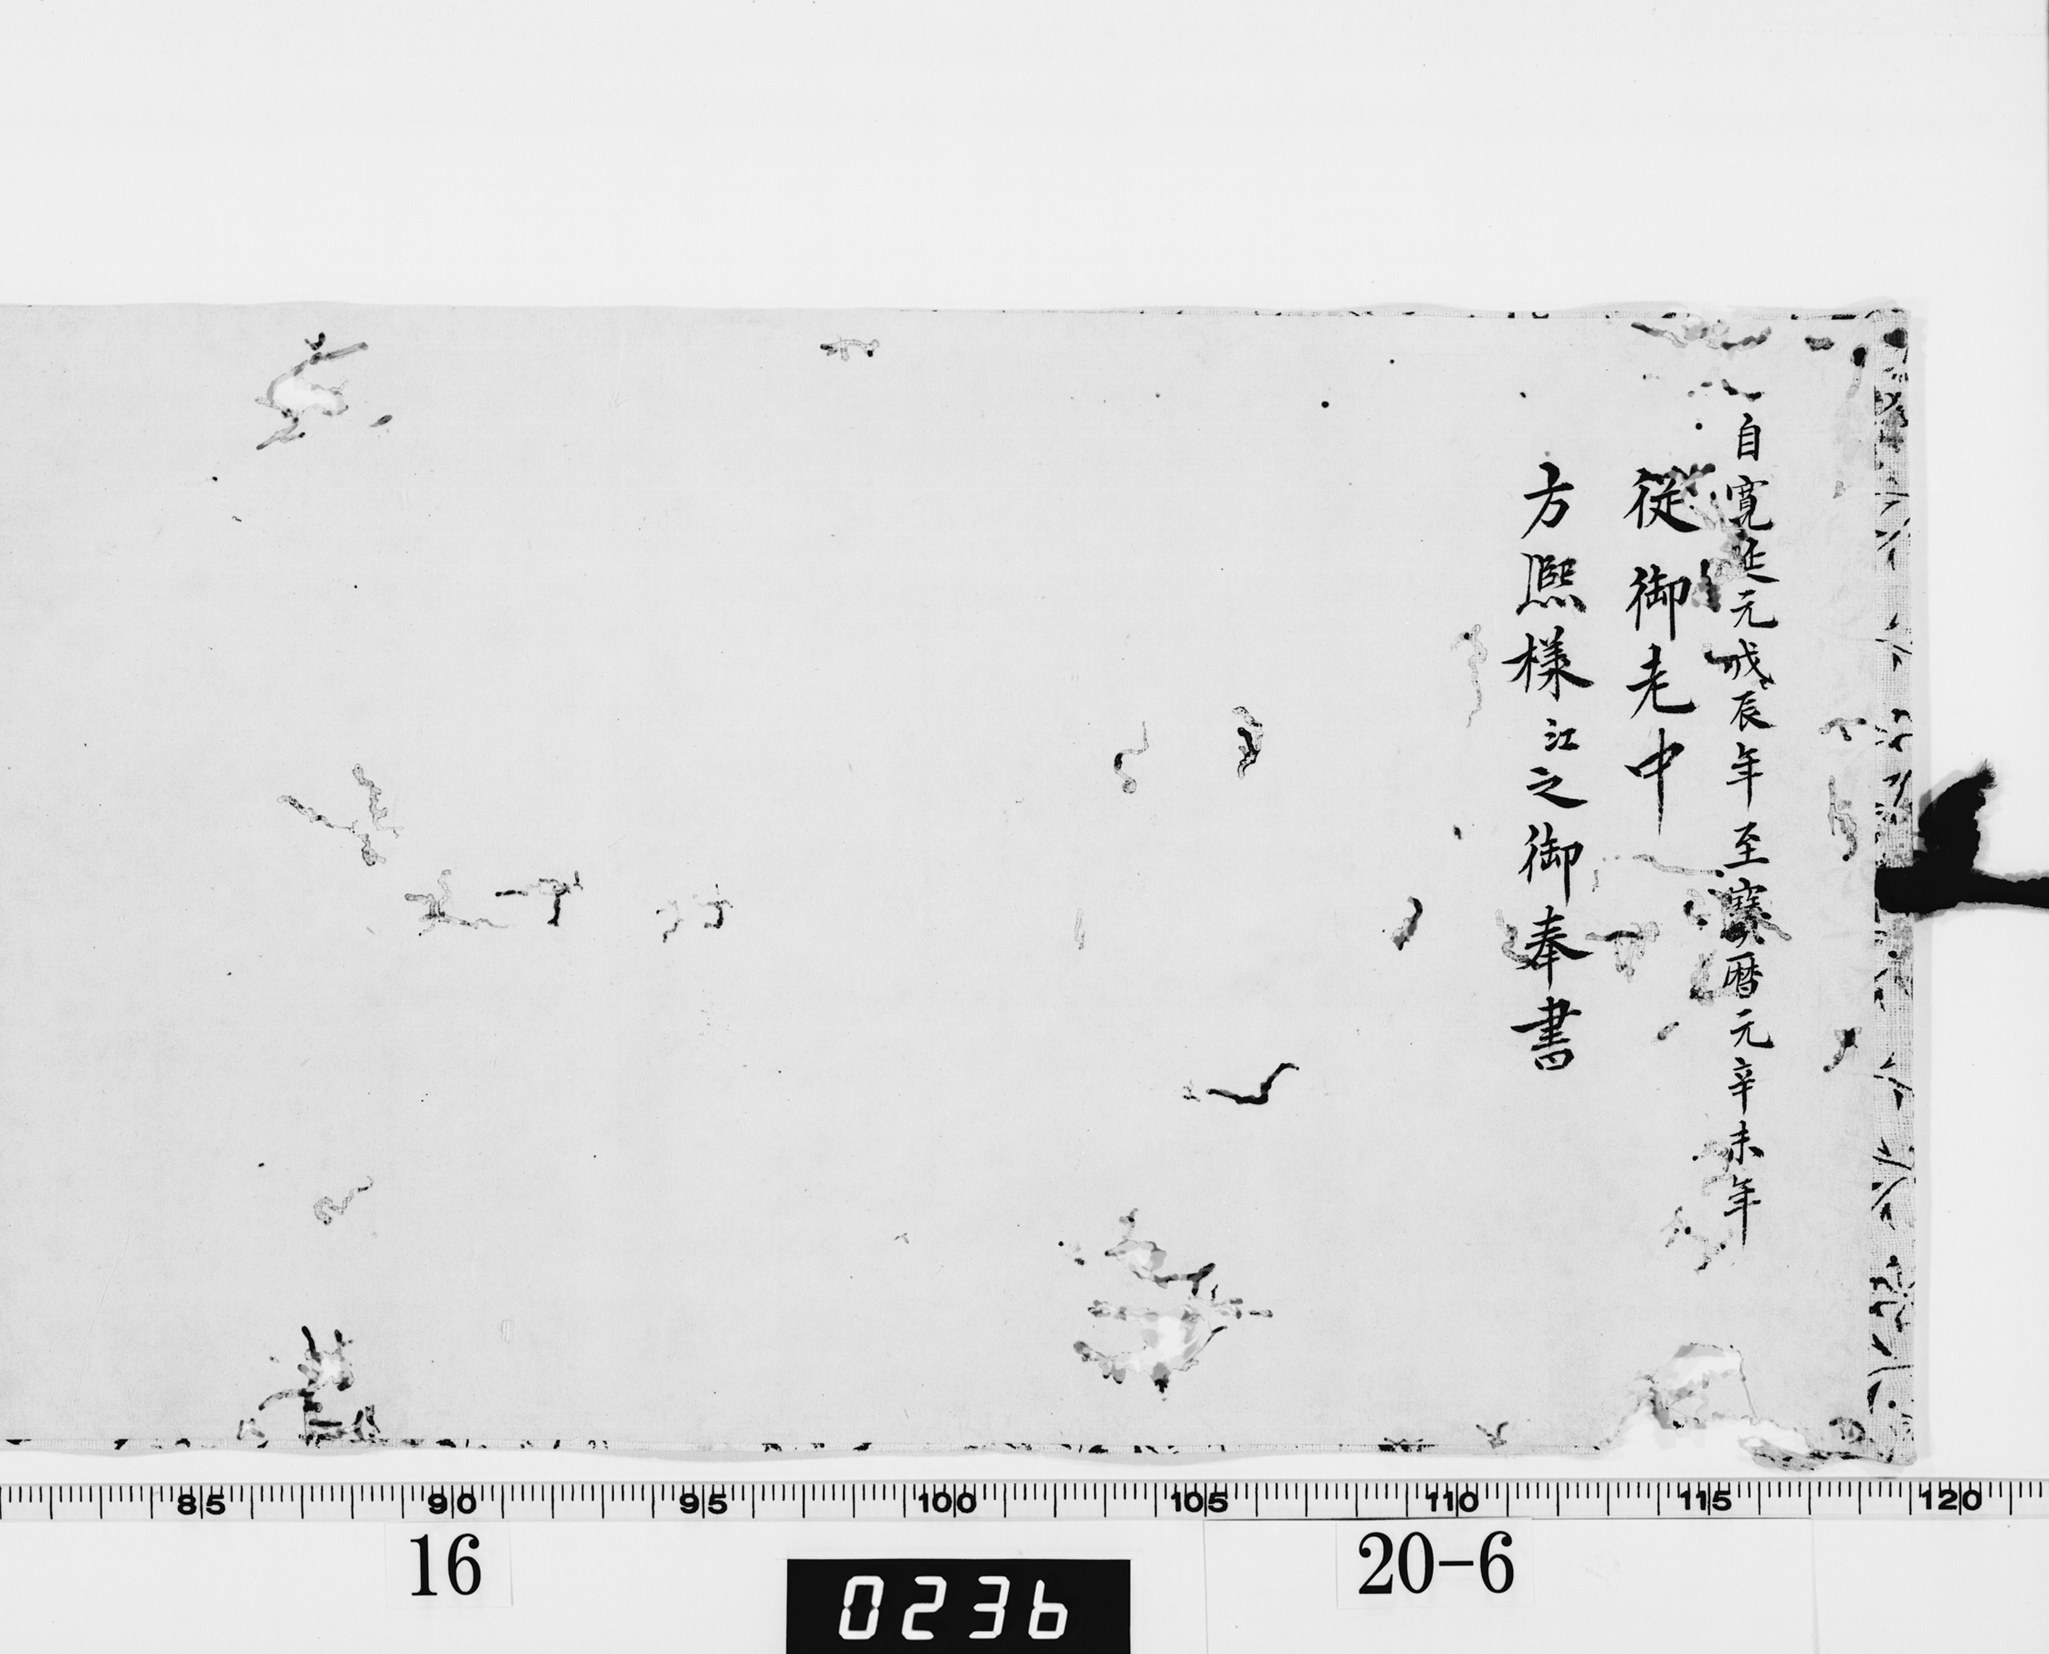 自寛延元戊辰年至寶暦元辛未年
従御老中
方熈様江之御奉書
85 90 95 100 105 110 115 120
16
20-6
0236